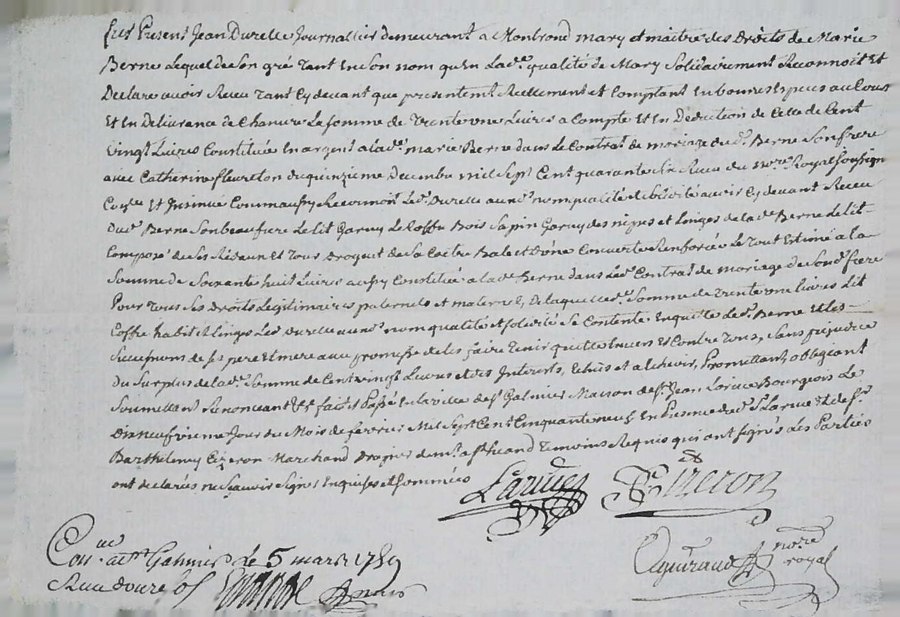 fut Present Jean Durelle Journallier demeurant a Montrond mary et maitre des Droits de Marie
Berne Lequel de Son gré tant En Son nom qu'En Lad.e qualité de Mary Solidairement Reconnoit Et
Declare avoir Receu tant Cy devant que presentem.t Reellement et Comptant En bonnes Especes au Cours
Et En Delivrance de Chanvre La somme de trente une Livres a Compte Et En Deduction de Celle de Cent
vingt Livres Constituée En argent a lad.e marie Berne dans Le Contrat de mariage du S.r Berne Son frere
avec Catherine fleureton du quinzieme Decembre mil Sept Cent quarante Six Receu du no.re Royal Soussign
Con.lé Et Insinué Comm' aussy Reconnoit Led. Durelle aud. nom qualité et solidité avoir Cy devant Receu
Dud. Berne Son beau frere Le Lit Garny Le Coffre Bois Sapin Garny des nipes et Linges de lad.e Berne Le lit
Composé de Ses Rideaux Et tour Droguet de la Coetre Bale et d'une Couverte Renforcée Le tout Estimé a la
Somme de Soixante huit Livres aussy Constitué a lad.e Berne dans Led. Contrat de mariage de Sond. frere
Pour tous Ses Droits Legitimaires paternels et maternels, De laquelle d.e Somme de trente une Livres Lit
Coffre habit et Linges Led. Durelle aud. nom qualité et solidité Se Contente En quitte Led. Berne Et les
Successions de Ses pere Et mere avec promesse de les faire tenir quitte Envers Et Contre tous, Sans prejudice
Du Surplus de lad.e Somme de Cent vingt Livres et des Interets, Echus et a Echeoir, Promettant, obligeant
Soumettant Renonceant &.a fait Et Passé En la ville de S.t Galmier Maison de S.r Jean Larue Bourgeois Le
Dix neuvieme Jour du Mois de fevrier Mil Sept Cent Cinquante neuf En Presence dud. S.r Larue Et de S.r
Barthelemy Cizeron Marchand Drogiste de m.e S.t heand temoins Requis qui ont Signés Les Parties
ont declarés ne Sçavoir Signer Enquises et Sommées
Larue Cizeron
Con.lé a S.t Galmier le 5 mars 1759
Receu douze sols
no.re royal